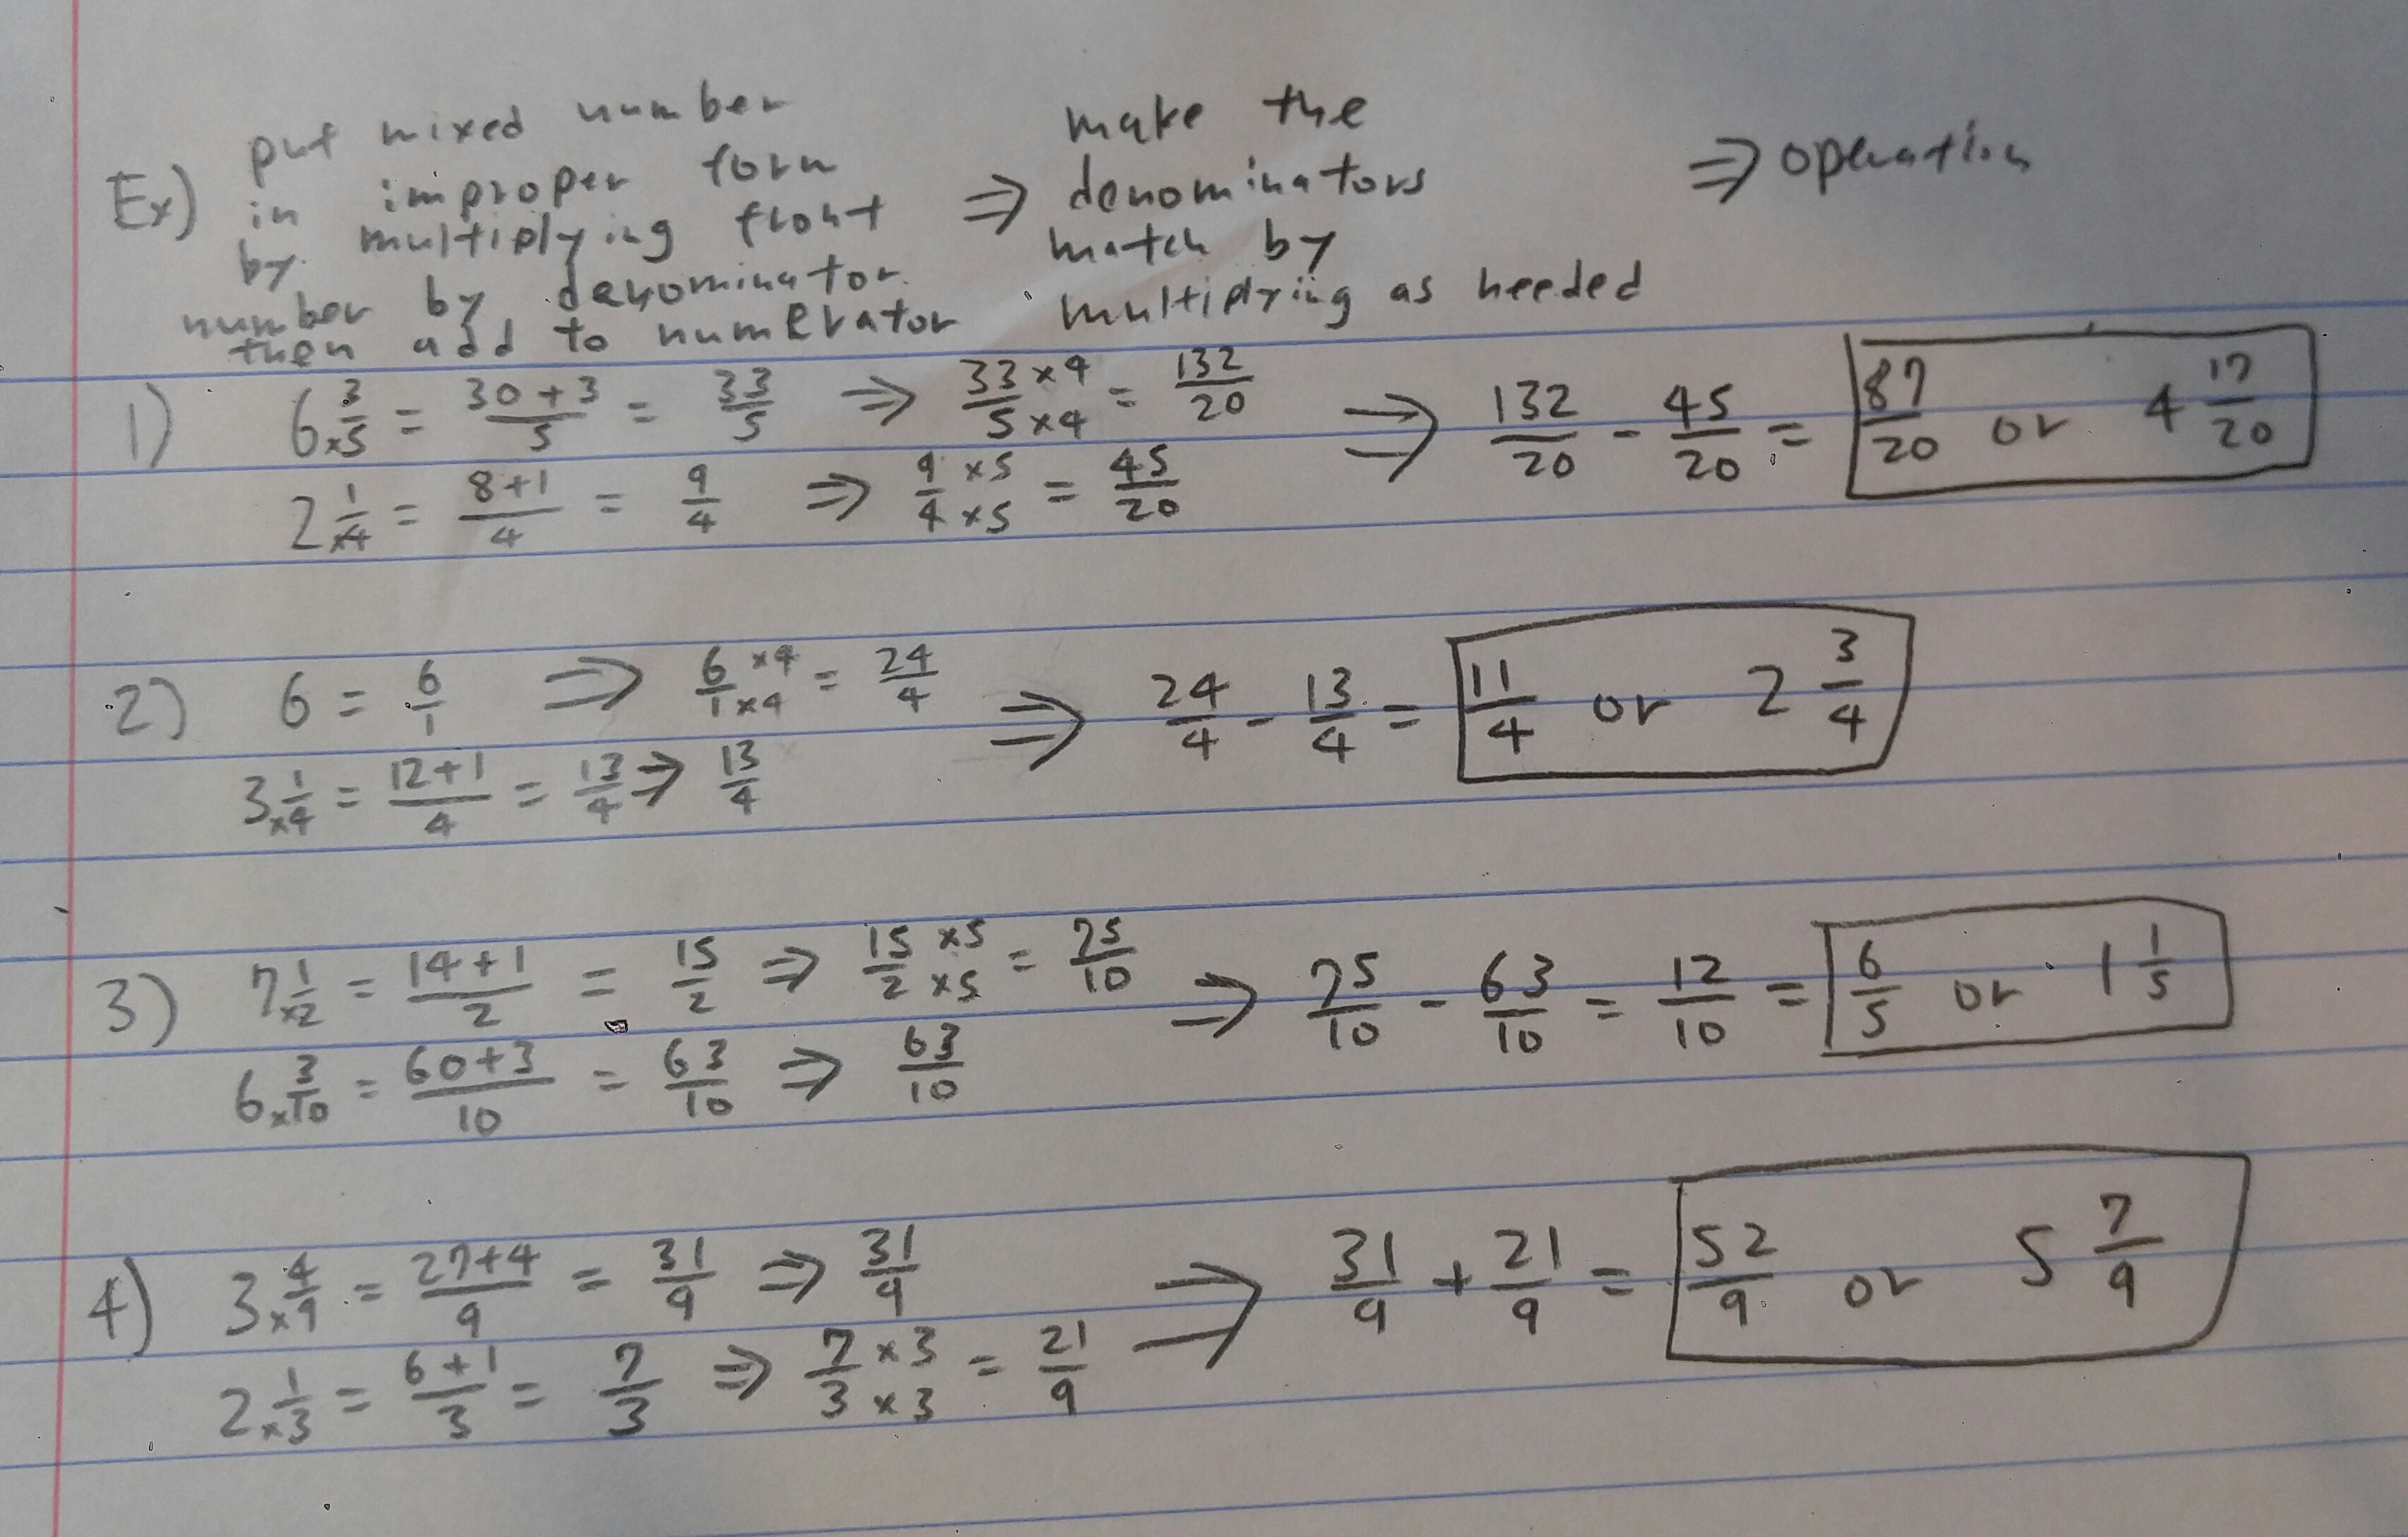 Ex) put mixed number
in improper form
by multiplying front
number by denominator
then add to numerator
⇒ make the
denominators
match by
multiplying as needed
⇒ operation
1) 6 3/5 ×5 = (30+3)/5 = 33/5 ⇒ 33×4/5×4 = 132/20
2 1/4 ×4 = (8+1)/4 = 9/4 ⇒ 9×5/4×5 = 45/20
⇒ 132/20 - 45/20 = 87/20 or 4 17/20
2) 6 = 6/1 ⇒ 6×4/1×4 = 24/4
3 1/4 ×4 = (12+1)/4 = 13/4 ⇒ 13/4
⇒ 24/4 - 13/4 = 11/4 or 2 3/4
3) 7 1/2 ×2 = (14+1)/2 = 15/2 ⇒ 15×5/2×5 = 75/10
6 3/10 × = (60+3)/10 = 63/10 ⇒ 63/10
⇒ 75/10 - 63/10 = 12/10 = 6/5 or 1 1/5
4) 3 4/9 ×9 = (27+4)/9 = 31/9 ⇒ 31/9
2 1/3 ×3 = (6+1)/3 = 7/3 ⇒ 7×3/3×3 = 21/9
⇒ 31/9 + 21/9 = 52/9 or 5 7/9